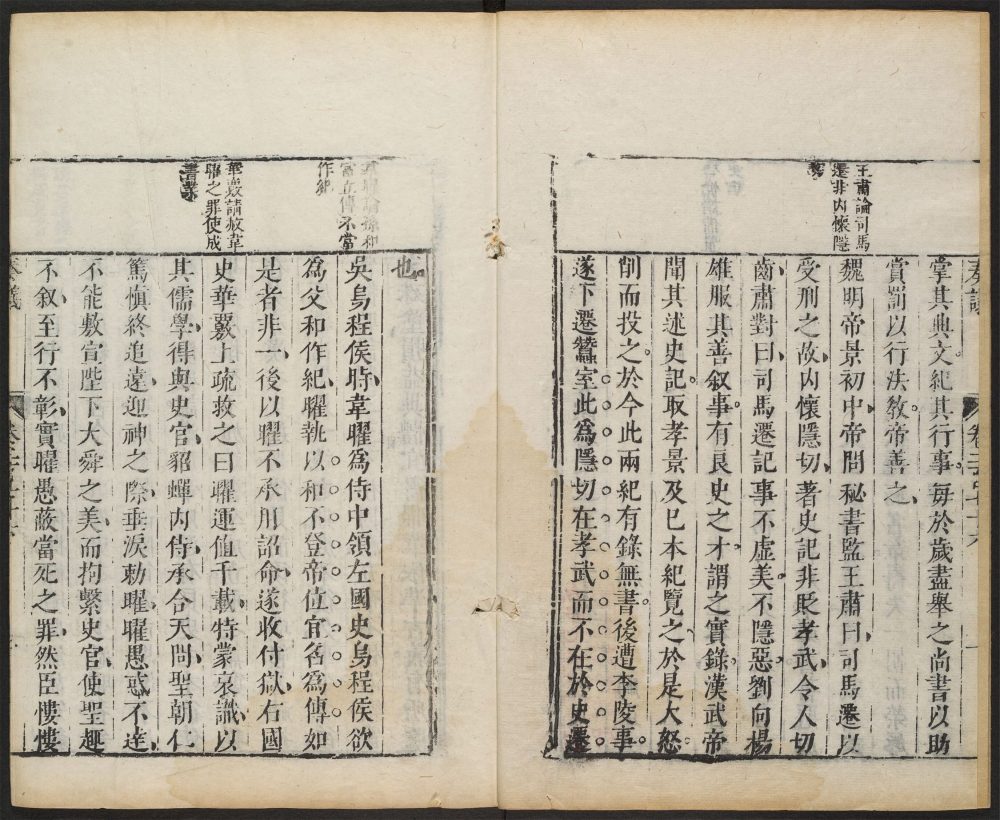 奏議
卷二百七十六
掌其典文紀其行事每於歲盡舉之尚書以助
賞罰以行法教帝善之
王肅論司馬
遷非內懷隱
切
魏明帝景初中帝問秘書監王肅曰司馬遷以
受刑之故內懷隱切著史記非貶孝武令人切
齒肅對曰司馬遷記事不虛美不隱惡劉向楊
雄服其善叙事有良史之才謂之實錄漢武帝
聞其述史記取孝景及已本紀覽之於是大怒
削而投之於今此兩紀有錄無書後遭李陵事
遂下遷蠶室此為隱切在孝武而不在於史遷
也
韋曜論孫和
當立傳不當
作紀
吳烏程侯時韋曜為侍中領左國史烏程侯欲
為父和作紀曜執以和不登帝位宜名為傳如
是者非一後以曜不承用詔命遂收付獄右國
華覈請赦韋
曜之罪使成
書業
史華覈上疏救之曰曜運值千載特蒙哀識以
其儒學得與史官貂蟬內侍承合天問聖朝仁
篤慎終追遠迎神之際垂淚勅曜曜愚惑不達
不能敷宣陛下大舜之美而拘繫史官使聖趣
不叙至行不彰實曜愚蔽當死之罪然臣慺慺
奏議